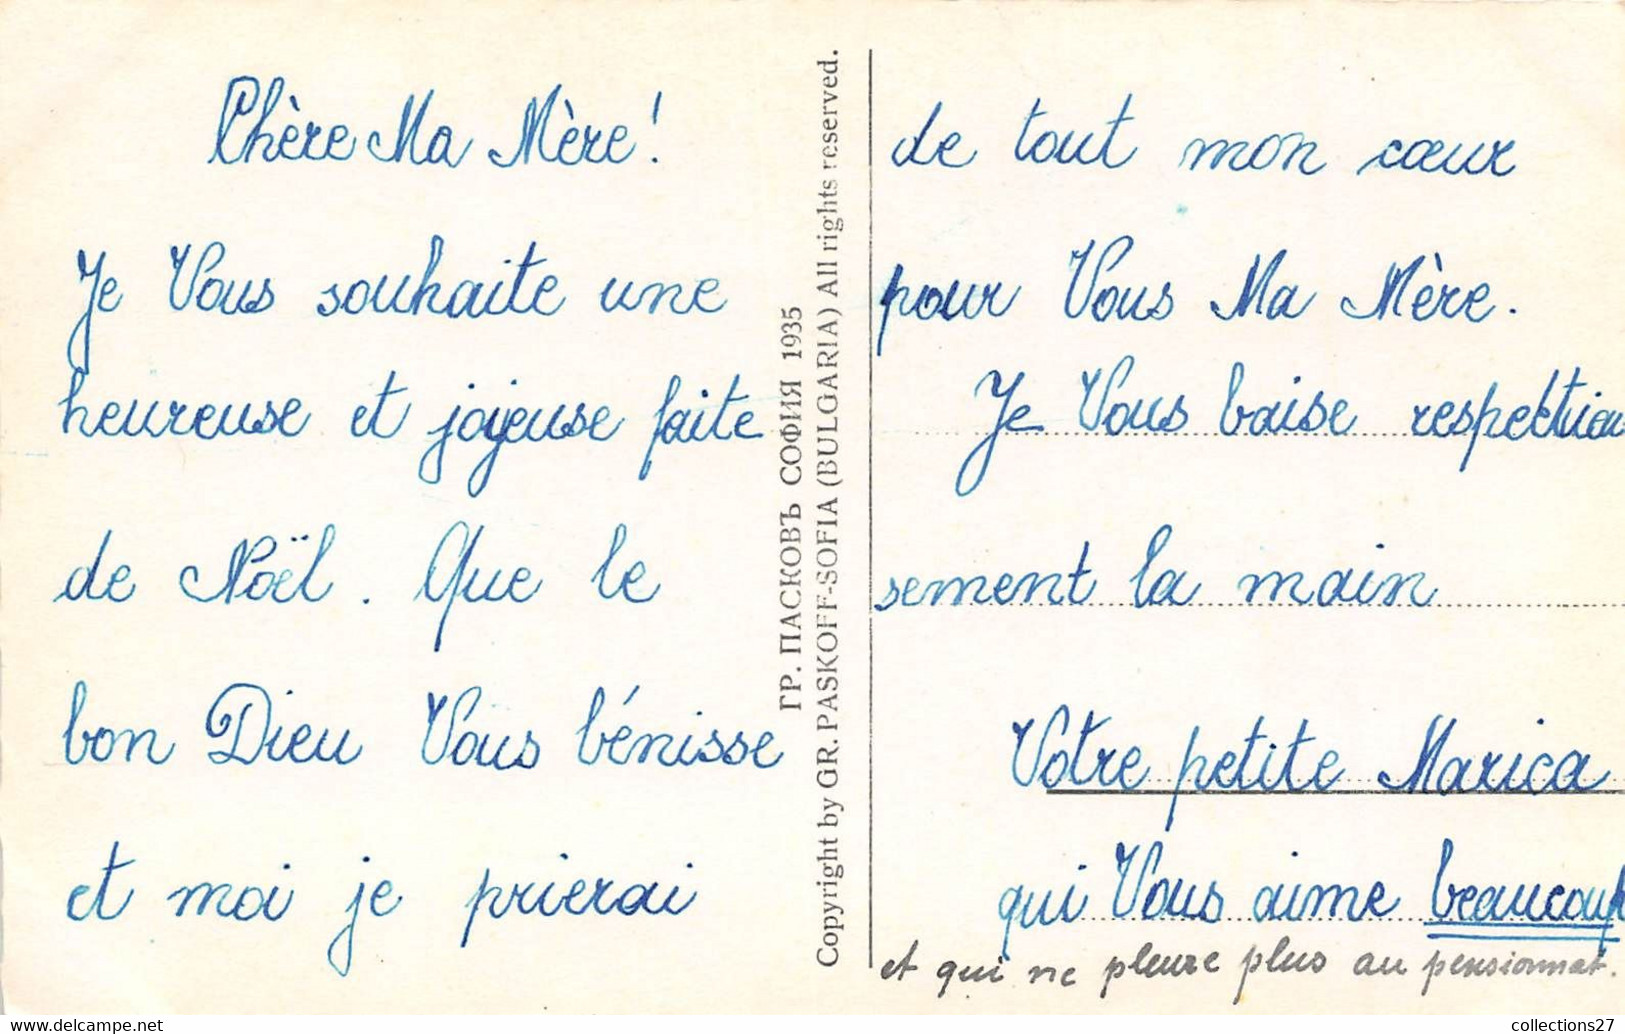 Chère Ma Mère!
Je Vous souhaite une
heureuse et joyeuse faite
de Noël. Que le
bon Dieu Vous bénisse
et moi je prierai
ГР. ПАСКОВЪ СОФИЯ 1935
Copyright by GR. PASKOFF-SOFIA (BULGARIA) All rights reserved.
de tout mon cœur
pour Vous Ma Mère.
Je Vous baise respectueu
sement la main
Votre petite Marica
qui Vous aime beaucoup
et qui ne pleure plus au pensionnat.
collections27